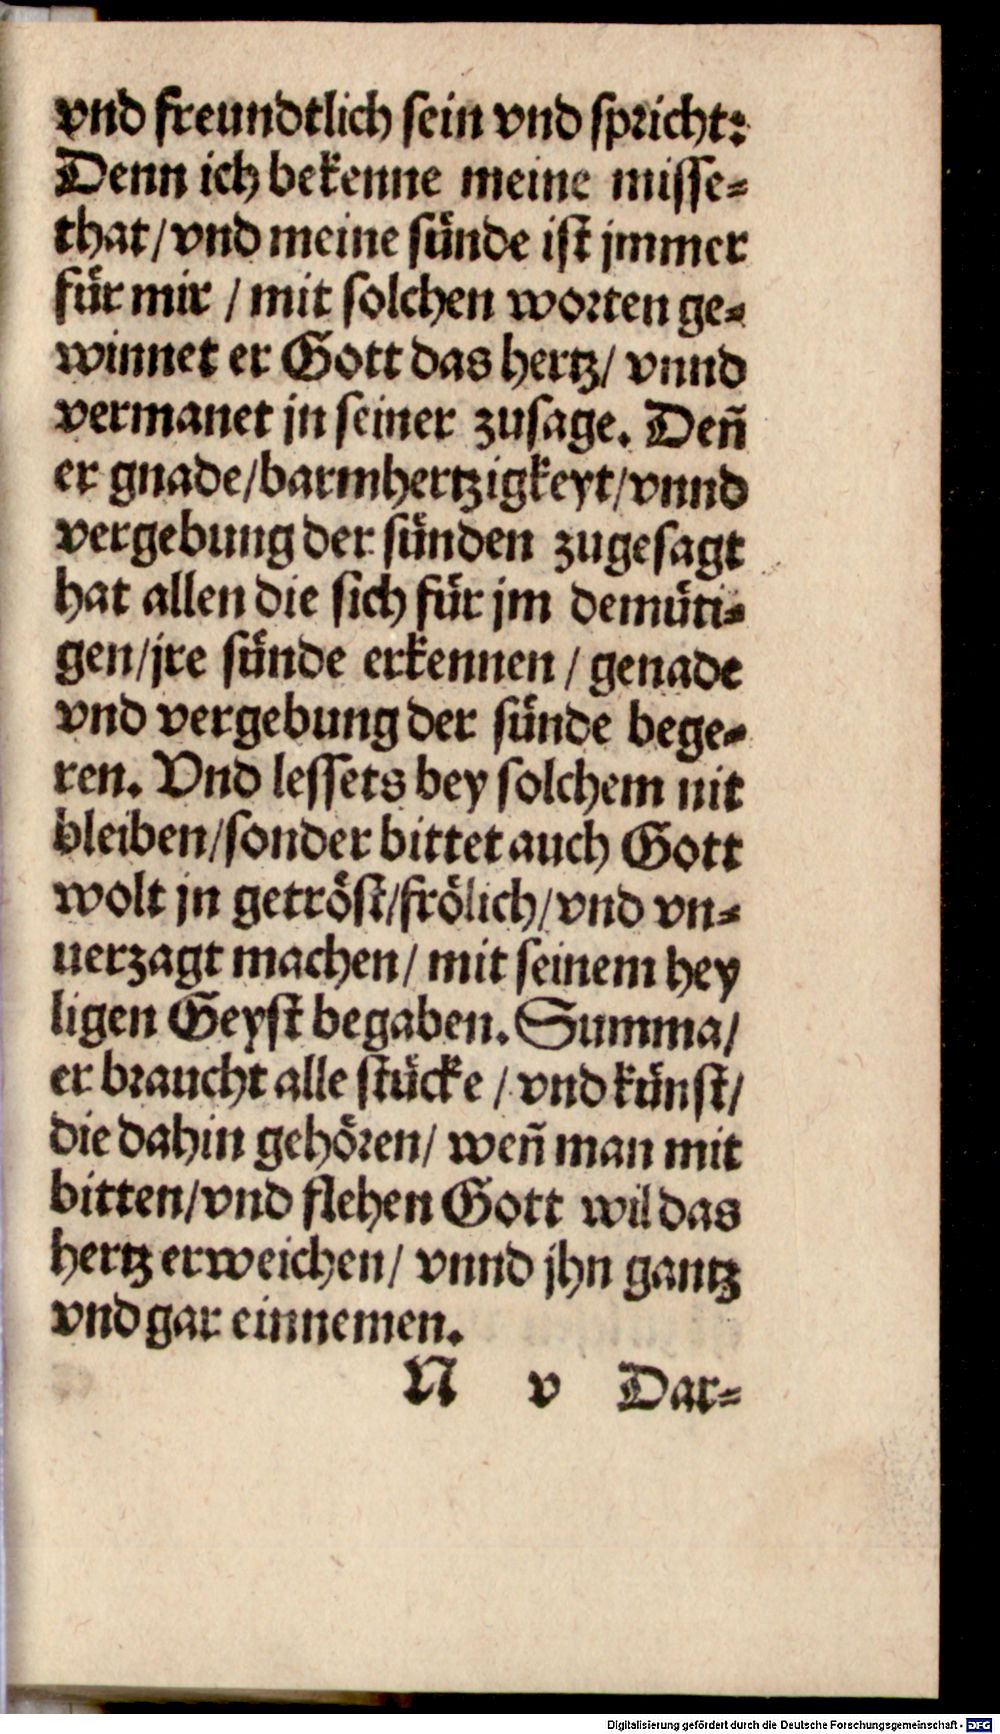 vnd freundtlich sein vnd spricht:
Denn ich bekenne meine misse-
that/ vnd meine sünde ist jmmer
für mir / mit solchen worten ge-
winnet er Gott das hertz/ vnnd
vermanet jn seiner zusage. Deñ
er gnade/barmhertzigkeyt/vnnd
vergebung der sünden zugesagt
hat allen die sich für jm demüti-
gen/jre sünde erkennen / genade
vnd vergebung der sünde bege-
ren. Vnd lessets bey solchem nit
bleiben/sonder bittet auch Gott
wolt jn getröst/frölich/vnd vn-
uerzagt machen/ mit seinem hey
ligen Geyst begaben. Summa/
er braucht alle stücke / vnd künst/
die dahin gehören/ weñ man mit
bitten/vnd flehen Gott wil das
hertz erweichen/ vnnd jhn gantz
vnd gar einnemen.
N v Dar-
Digitalisierung gefördert durch die Deutsche Forschungsgemeinschaft - DFG